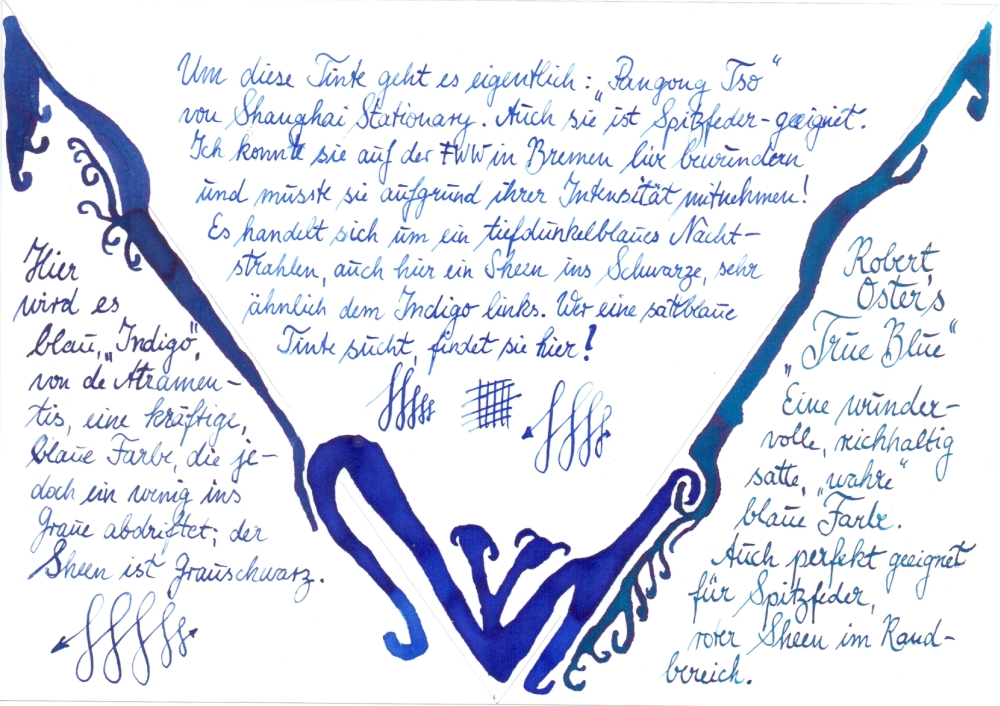 Um diese Tinte geht es eigentlich: „Pangong Tso“
von Shanghai Stationary. Auch sie ist Spitzfeder-geeignet.
Ich konnte sie auf der FWW in Bremen live bewundern
und musste sie aufgrund ihrer Intensität mitnehmen!
Es handelt sich um ein tiefdunkelblaues Nacht-
strahlen, auch hier ein Sheen ins Schwarze, sehr
ähnlich dem Indigo links. Wer eine sattblaue
Tinte sucht, findet sie hier!
Hier
wird es
blau, „Indigo“,
von de Atramen-
tis, eine kräftige,
blaue Farbe, die je-
doch ein wenig ins
Graue abdriftet; der
Sheen ist Grauschwarz.
Robert
Oster's
„True Blue“
Eine wunder-
volle, reichhaltig
satte, „wahre“
blaue Farbe.
Auch perfekt geeignet
für Spitzfeder,
roter Sheen im Rand-
bereich.